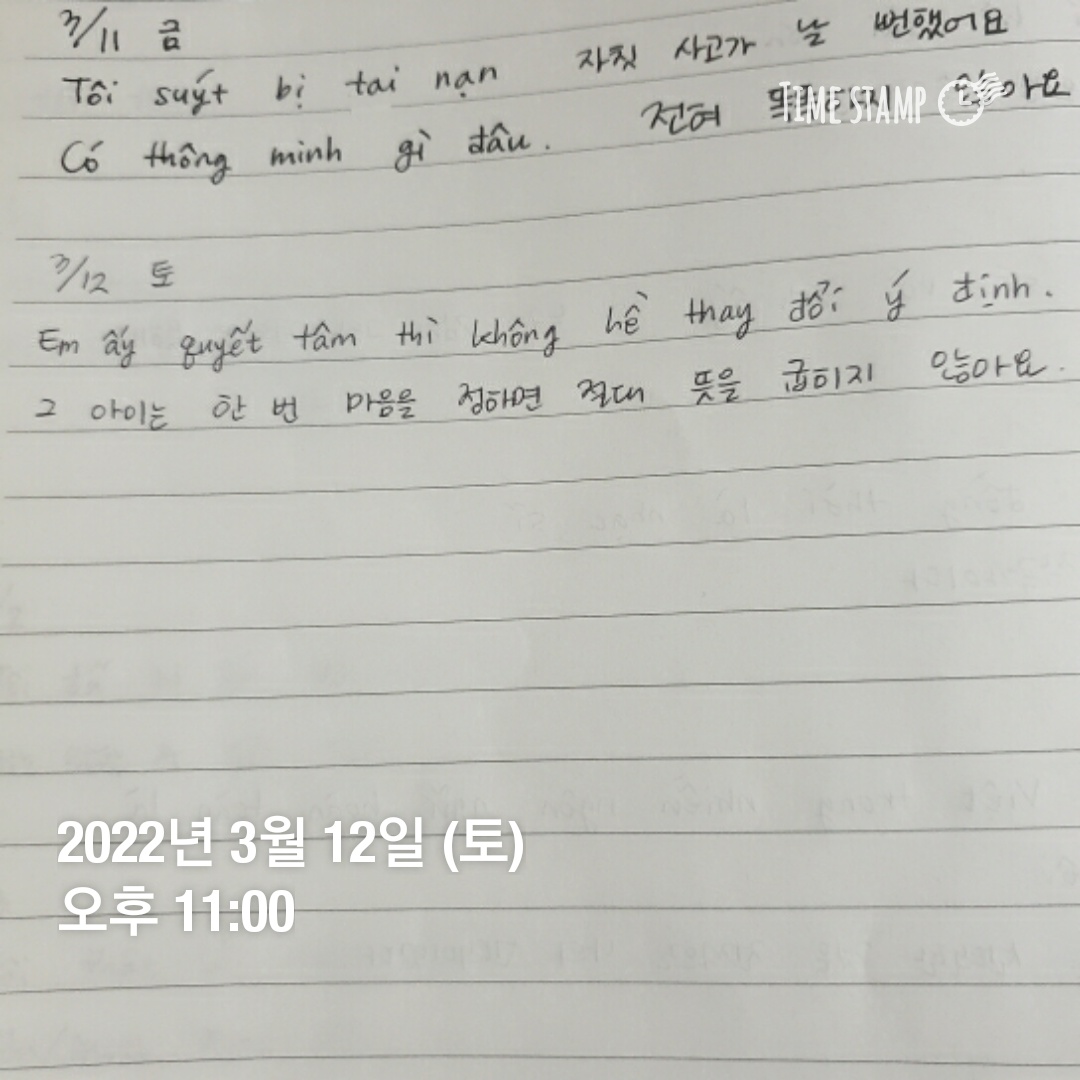 3/11 금
Tôi suýt bị tai nạn 자칫 사고가 날 뻔했어요
Có thông minh gì đâu. 전혀 똑똑하지 않아요
TIME STAMP
3/12 토
Em ấy quyết tâm thì không hề thay đổi ý định.
그 아이는 한 번 마음을 정하면 절대 뜻을 굽히지 않아요.
2022년 3월 12일 (토)
오후 11:00